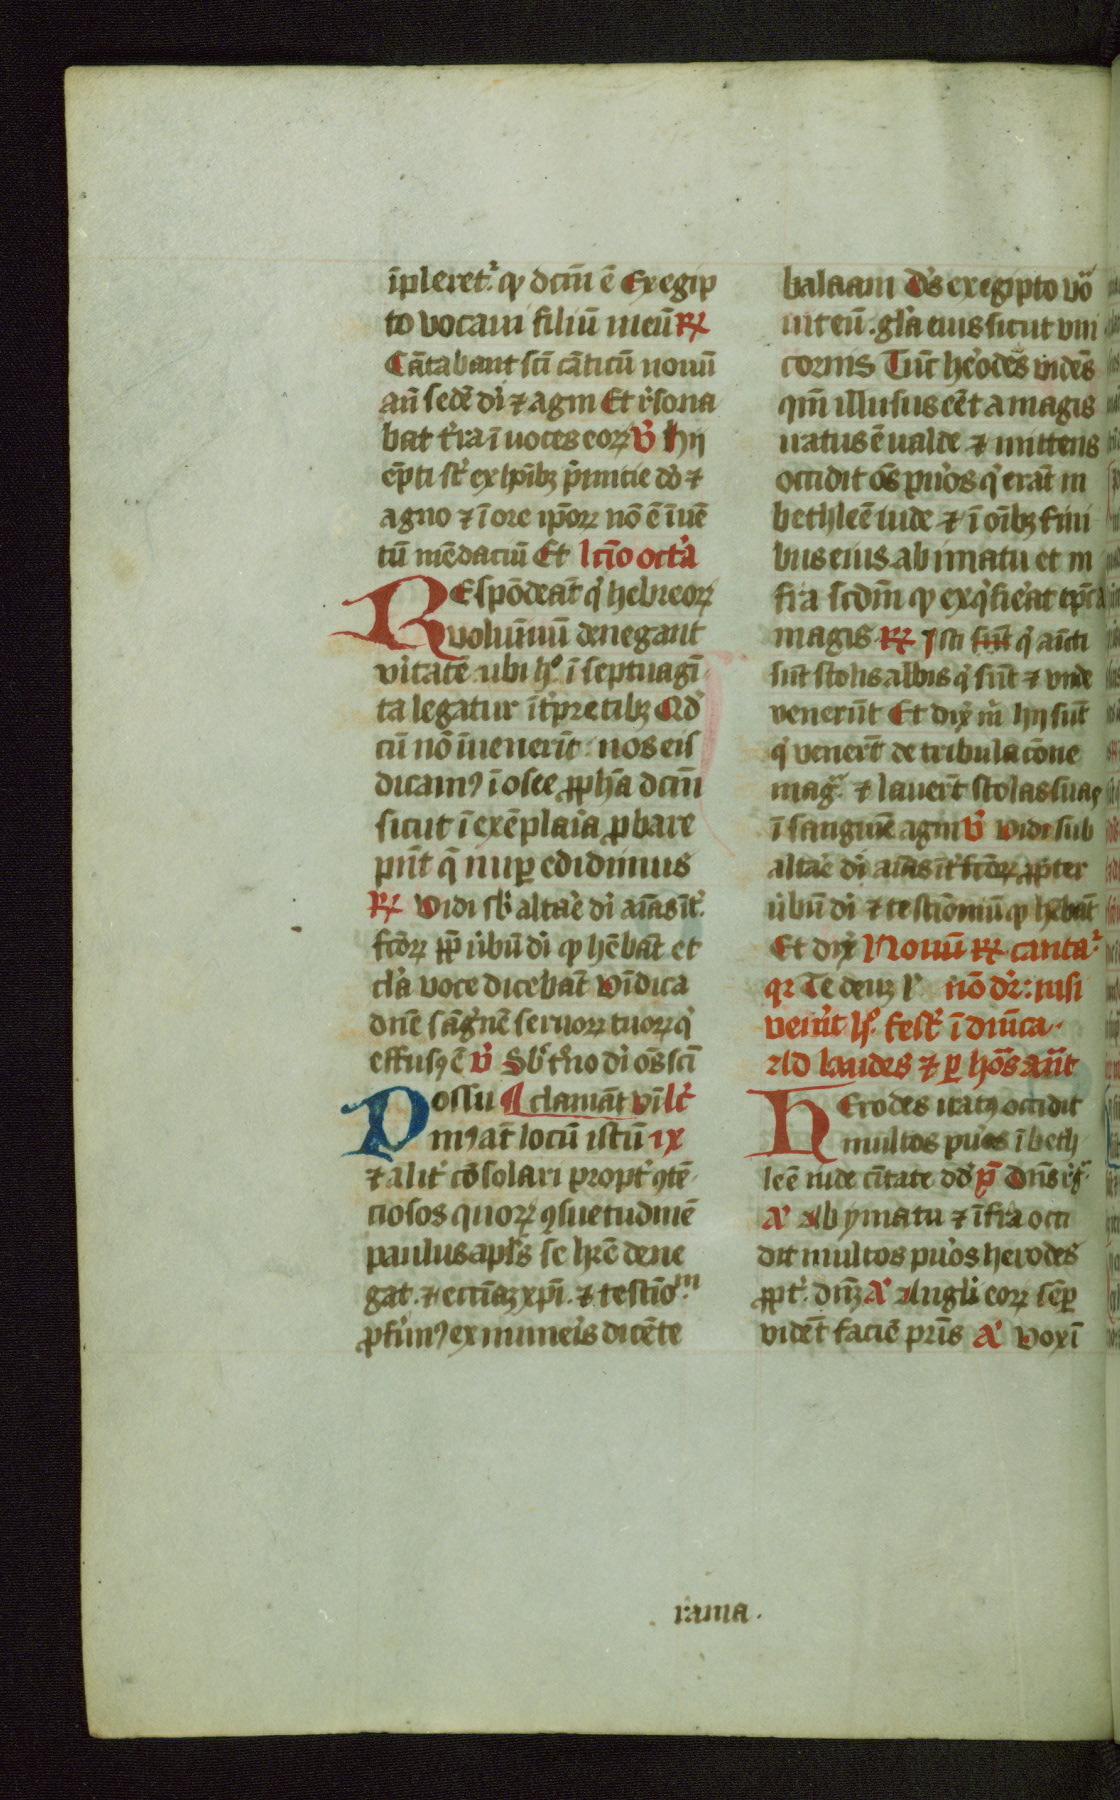 īpleret᷑ qꝫ dcm̄ ē Ex egip
to vocaui filiū meū RꝜ
Cātabant sc̄i cāticū nouū
an̄ sedē di ⁊ agni Et r̓sona
bat t̓ra ī uoces eoꝝ v̓ hij
ēpti st̓ ex hoīb; p̄mitie dō ⁊
agno ⁊ ī ore ip̄oꝝ nō ē īuē
tū mēdaciū Et lcīo octa̓
REspōdeāt q̓ hebreoꝝ
voluīnū denegant
v̓itatē ubi h° ī septuagī
ta legatur īt̓pretib; Qd̓
cū nō īuenerīt nos eis
dicamꝰ ī osee ꝓpha̅ dcm̄
sicut ī exēplaīa ꝓbare
pn̄t q̄ nuꝑ edidimus
RꝜ Vidi sb̓ altar̓e di aīas īt̓
fcōꝝ ꝓp̄ ūbū di qꝫ hēbāt et
cla̓ voce dicebāt vīdica
dn̄e sāg̓nē seruoꝝ tuoꝝ q̓
effusꝰ ē v̓ Sb̓ t̓no di oēs sc̄i
Possū clamāt vīlt̓
mꝰ at̄ locū istū ix
⁊ alit̓ cōsolari propt̓ ꝯtē
ciosos quoꝝ ꝯsuetudinē
paulus apl̓s se hr̄e dene
gat ⁊ eccīaꝫ xp̄i ⁊ testīom
ꝓfimꝰ ex nuneīs dicēte
balaam ds̓ ex egipto vo
uit eū gl̓a eius sicut vni
cornis Tūc he̓odes videns
qm̄ illusus eēt a magis
iratus ē ualde ⁊ mittens
occidit oēs pu̓os q̓ erāt in
bethleē iude ⁊ ī oīb; fini
bus eius ab imatu et in
fra scdm̄ qꝫ exq̓sie̓at tp̄ꝰ a
magis RꝜ Isti sūt q̓ aīcti
sūt stolis albis q̓ sūt ⁊ vnde
venerūt Et dix̓ m̓ hij sūt
q̓ venerūt de tribulacōne
mag ⁊ lauerūt stolas suas
ī sanguīe agni v̓ Vidi sub
altar̓e di aīas īt̓fcōꝝ ꝓpter
ūbū di ⁊ testīoniū qꝫ hebāt
Et dix̓ Nonū RꝜ canta
qꝛ Te deuꝫ l̓ nō dr̓ nisi
ven̓it h° fest̓ ī dnīca
Ad laudes ⁊ ꝑ hōs ant̄
HErodes iratꝰ occidit
multos pu̓os ī beth
leē iude cītate dd̓ p̄ Dn̄s r̓g
A̓ Ab ymatu ⁊ īfra occi
dit multos pu̓os herodes
ꝓpt̓ dn̄ꝫ A̓ Angli eoꝝ sēꝑ
vidēt faciē pr̄is A̓ Vox ī
rama .